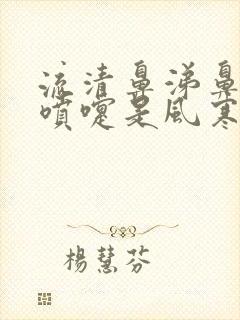 流清鼻涕鼻
噴嚏是風寒
楊慧芬